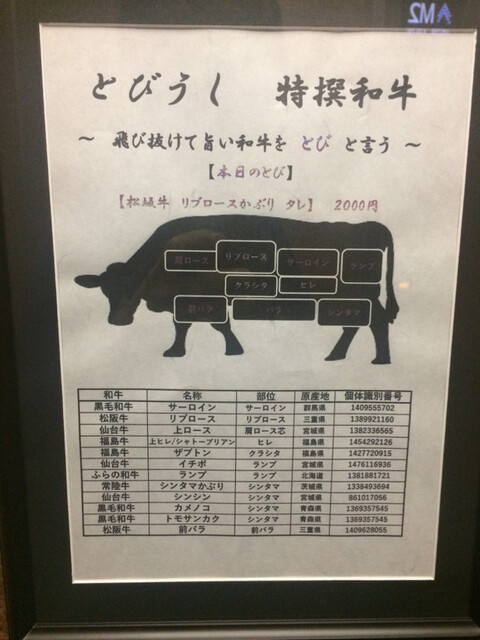 とびうし 特撰和牛
～ 飛び抜けて旨い和牛を とび と言う ～
【本日のとび】
【松坂牛 リブロースかぶり タレ】 2000円
肩ロース リブロース サーロイン ランプ
クラシタ ヒレ
前バラ バラ シンタマ
和牛 名称 部位 原産地 個体識別番号
黒毛和牛 サーロイン サーロイン 群馬県 1409555702
松阪牛 リブロース リブロース 三重県 1389921160
仙台牛 上ロース 肩ロース芯 宮城県 1382336565
福島牛 上ヒレ/シャトーブリアン ヒレ 福島県 1454292126
福島牛 ザブトン クラシタ 福島県 1427720915
仙台牛 イチボ ランプ 宮城県 1476116936
ふらの和牛 ランプ ランプ 北海道 1381881721
常陸牛 シンタマかぶり シンタマ 茨城県 1338493694
仙台牛 シンシン シンタマ 宮城県 861017056
黒毛和牛 カメノコ シンタマ 青森県 1369357545
黒毛和牛 トモサンカク シンタマ 青森県 1369357545
松阪牛 前バラ 前バラ 三重県 1409628055